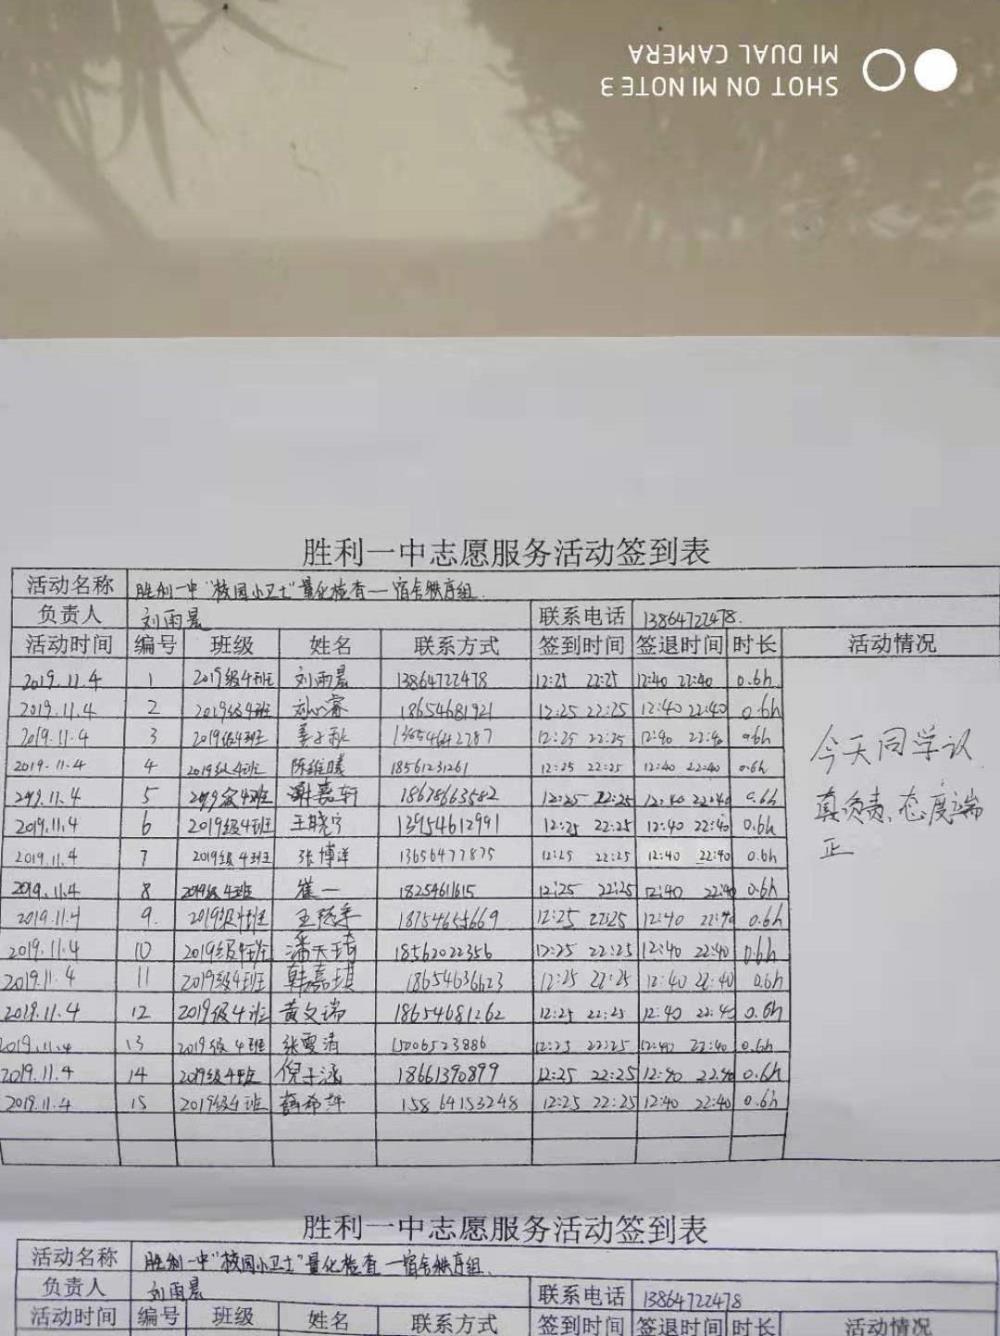 SHOT ON MI NOTE 3
MI DUAL CAMERA
胜利一中志愿服务活动签到表
活动名称 胜利一中"校园小卫士"量化检查—宿舍秩序组
负责人 刘雨晨 联系电话 13864722478
活动时间 编号 班级 姓名 联系方式 签到时间 签退时间 时长 活动情况
2019.11.4 1 2019级4班 刘雨晨 13864722478 12:25 22:25 12:40 22:40 0.6h
2019.11.4 2 2019级4班 18654681921 12:25 22:25 12:40 22:40 0.6h
2019.11.4 3 2019级4班 12:25 22:25 12:40 22:40 0.6h
2019.11.4 4 2019级4班 18561231261 12:25 22:25 12:40 22:40 0.6h
2019.11.4 5 2019级4班 谢嘉轩 18678663582 12:25 22:25 12:40 22:40 0.6h
2019.11.4 6 2019级4班 王晓宁 13954612991 12:25 22:25 12:40 22:40 0.6h
2019.11.4 7 2019级4班 张博洋 13656477875 12:25 22:25 12:40 22:40 0.6h
2019.11.4 8 2019级4班 崔一 1825461615 12:25 22:25 12:40 22:40 0.6h
2019.11.4 9. 2019级4班 18754655669 12:25 22:25 12:40 22:40 0.6h
2019.11.4 10 2019级4班 潘天琦 18562022356 12:25 22:25 12:40 22:40 0.6h
2019.11.4 11 2019级4班 韩嘉琪 18654636623 12:25 22:25 12:40 22:40 0.6h
2019.11.4 12 2019级4班 黄文瑞 18654681262 12:25 22:25 12:40 22:40 0.6h
2019.11.4 13 2019级4班 张雯清 15006523886 12:25 22:25 12:40 22:40 0.6h
2019.11.4 14 2019级4班 倪子涵 18661390899 12:25 22:25 12:40 22:40 0.6h
2019.11.4 15 2019级4班 15864153248 12:25 22:25 12:40 22:40 0.6h
今天同学认
真负责、态度端
正
胜利一中志愿服务活动签到表
活动名称 胜利一中"校园小卫士"量化检查—宿舍秩序组
负责人 刘雨晨 联系电话 13864722478
活动时间 编号 班级 姓名 联系方式 签到时间 签退时间 时长 活动情况